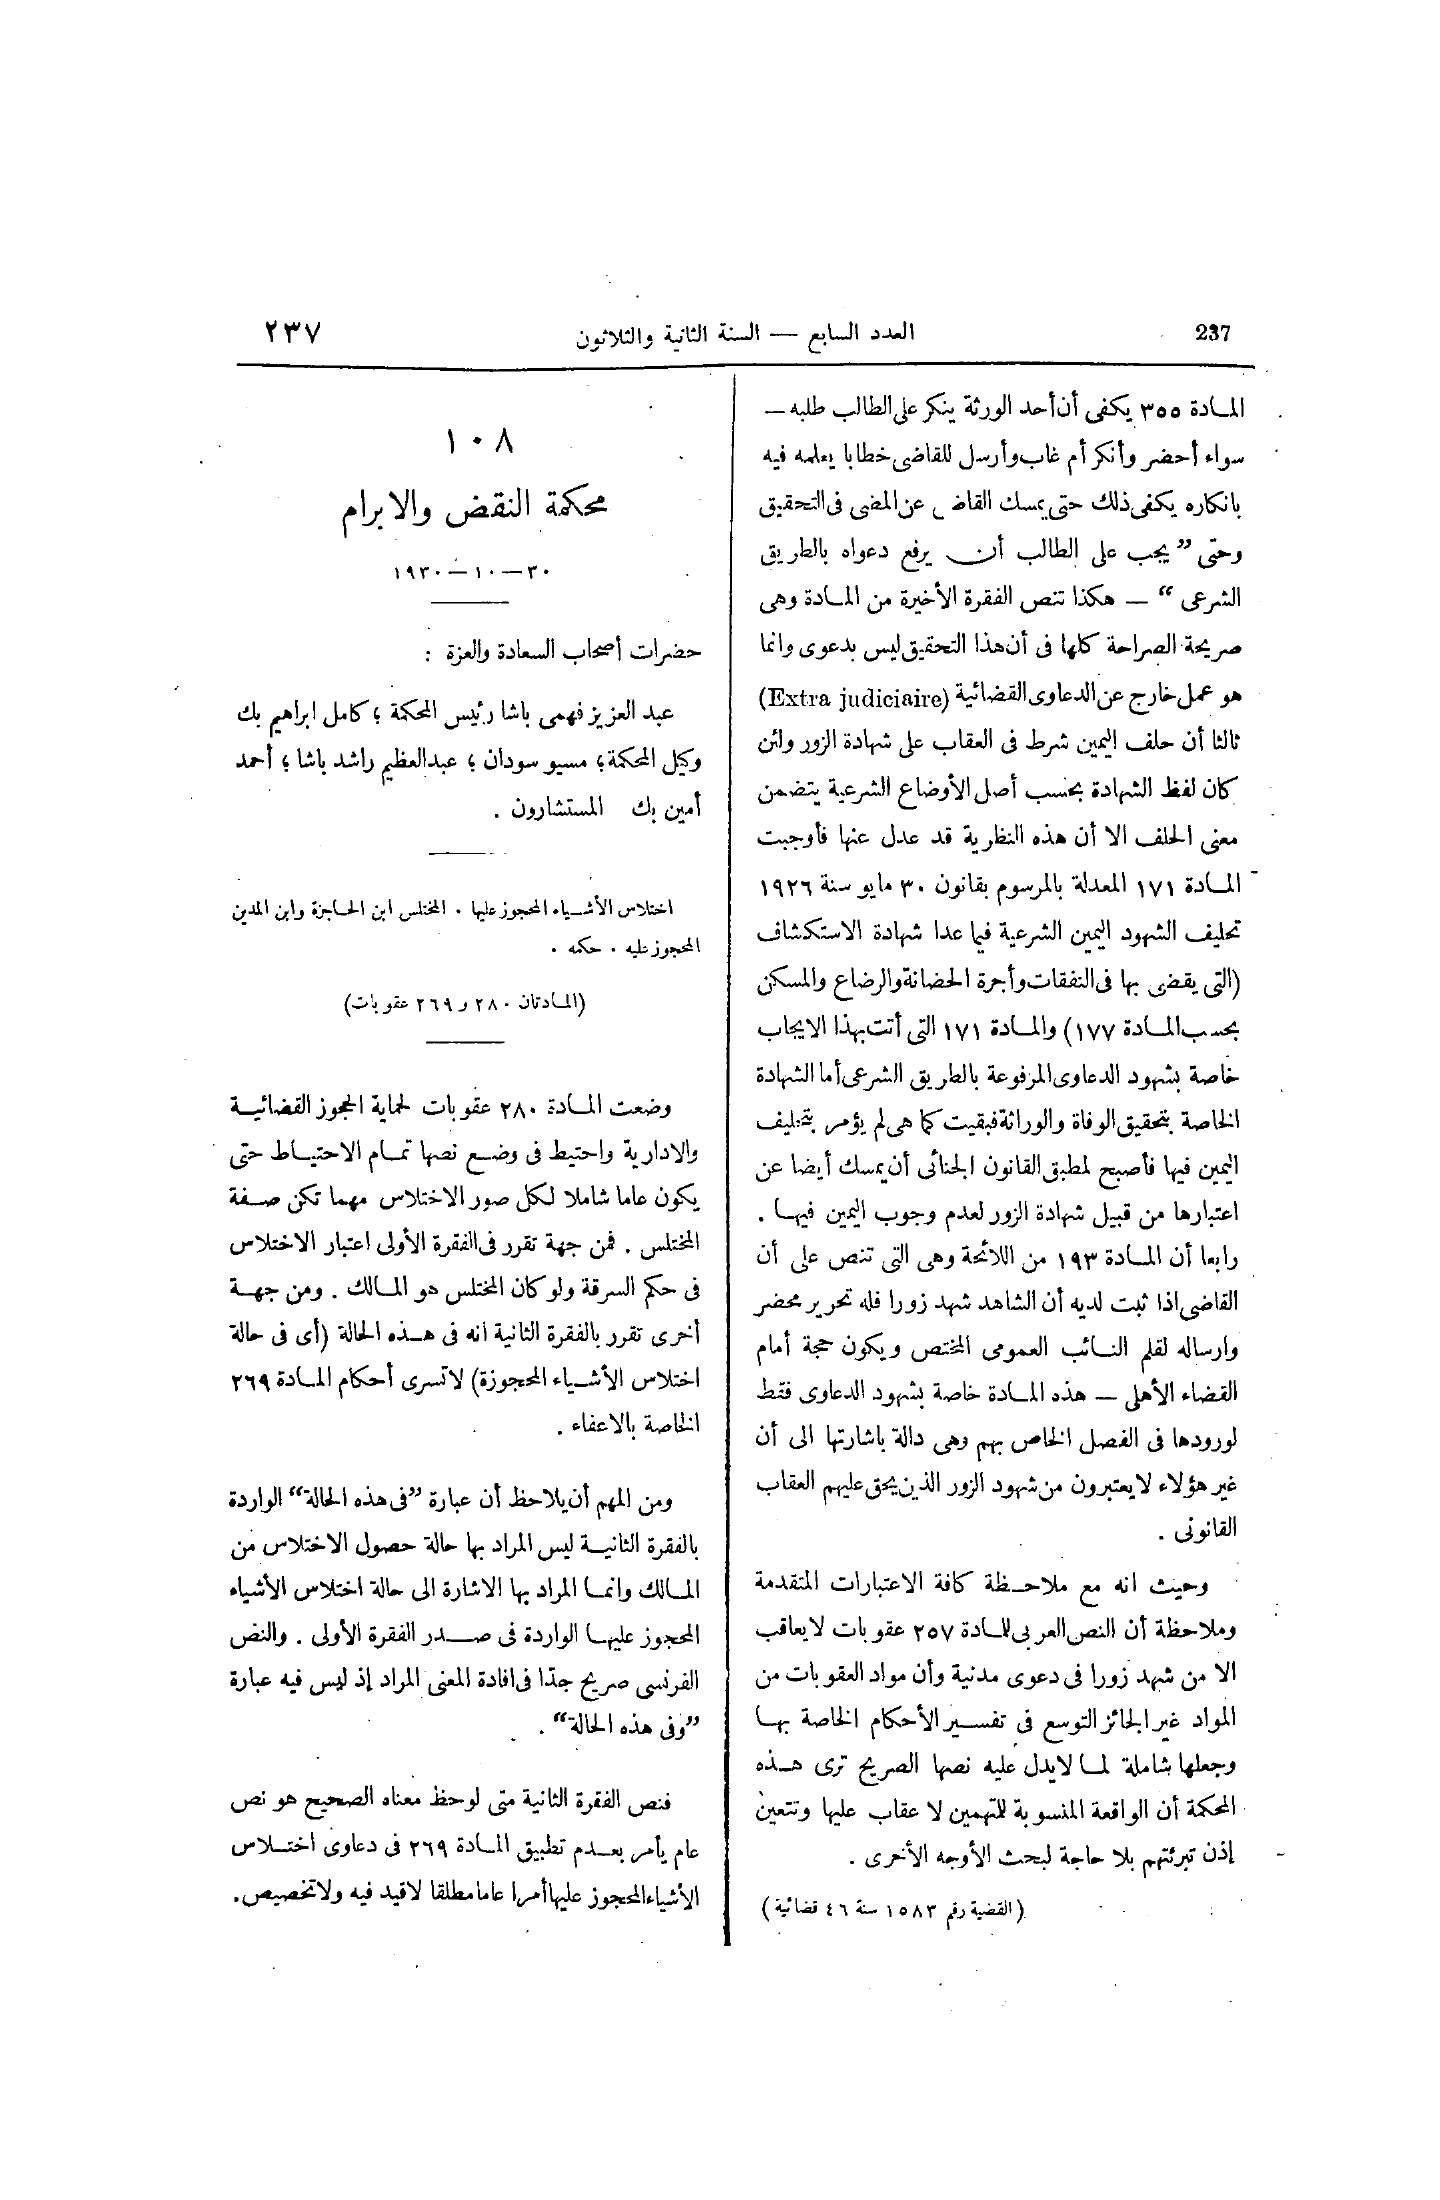 237
العدد السابع — السنة الثانية والثلاثون
٢٣٧
المادة ٣٥٥ يكفى أن أحد الورثة ينكر على الطالب طلبه —
سواء أحضر وأنكر أم غاب وأرسل للقاضى خطابا يعلمه فيه
بانكاره يكفى ذلك حتى يمسك القاضى عن المضى فى التحقيق
وحتى ”يجب على الطالب أن يرفع دعواه بالطريق
الشرعى“ — هكذا تنص الفقرة الأخيرة من المادة وهى
صريحة الصراحة كلها فى أن هذا التحقيق ليس بدعوى وانما
هو عمل خارج عن الدعاوى القضائية (Extra judiciaire)
ثالثا أن حلف اليمين شرط فى العقاب على شهادة الزور ولئن
كان لفظ الشهادة بحسب أصل الأوضاع الشرعية يتضمن
معنى الحلف الا أن هذه النظرية قد عدل عنها فأوجبت
المادة ١٧١ المعدلة بالمرسوم بقانون ٣٠ مايو سنة ١٩٢٦
تحليف الشهود اليمين الشرعية فيما عدا شهادة الاستكشاف
(التى يقضى بها فى النفقات وأجرة الحضانة والرضاع والمسكن
بحسب المادة ١٧٧) والمادة ١٧١ التى أتت بهذا الايجاب
خاصة بشهود الدعاوى المرفوعة بالطريق الشرعى أما الشهادة
الخاصة بتحقيق الوفاة والوراثة فبقيت كما هى لم يؤمر بتحليف
اليمين فيها فأصبح لمطبق القانون الجنائى أن يمسك أيضا عن
اعتبارها من قبيل شهادة الزور لعدم وجوب اليمين فيها .
رابعا أن المادة ١٩٣ من اللائحة وهى التى تنص على أن
القاضى اذا ثبت لديه أن الشاهد شهد زورا فله تحرير محضر
وارساله لقلم النائب العمومى المختص ويكون حجة أمام
القضاء الأهلى — هذه المادة خاصة بشهود الدعاوى فقط
لورودها فى الفصل الخاص بهم وهى دالة باشارتها الى أن
غير هؤلاء لا يعتبرون من شهود الزور الذين يحق عليهم العقاب
القانونى .
وحيث انه مع ملاحظة كافة الاعتبارات المتقدمة
وملاحظة أن النص العربى للمادة ٢٥٧ عقوبات لا يعاقب
الا من شهد زورا فى دعوى مدنية وأن مواد العقوبات من
المواد غير الجائز التوسع فى تفسير الأحكام الخاصة بها
وجعلها شاملة لما لا يدل عليه نصها الصريح ترى هذه
المحكمة أن الواقعة المنسوبة للمتهمين لا عقاب عليها وتتعين
إذن تبرئتهم بلا حاجة لبحث الأوجه الأخرى .
(القضية رقم ١٥٨٣ سنة ٤٦ قضائية)
١٠٨
محكمة النقض والابرام
٣٠ — ١٠ — ١٩٣٠
حضرات أصحاب السعادة والعزة :
عبد العزيز فهمى باشا رئيس المحكمة ؛ كامل ابراهيم بك
وكيل المحكمة ؛ مسيو سودان ؛ عبد العظيم راشد باشا ؛ أحمد
أمين بك المستشارون .
اختلاس الأشياء المحجوز عليها . المختلس ابن الحاجزة وابن المدين
المحجوز عليه . حكمه .
(المادتان ٢٨٠ و ٢٦٩ عقوبات)
وضعت المادة ٢٨٠ عقوبات لحماية الحجوز القضائية
والادارية واحتيط فى وضع نصها تمام الاحتياط حتى
يكون عاما شاملا لكل صور الاختلاس مهما تكن صفة
المختلس . فمن جهة تقرر فى الفقرة الأولى اعتبار الاختلاس
فى حكم السرقة ولو كان المختلس هو المالك . ومن جهة
أخرى تقرر بالفقرة الثانية انه فى هذه الحالة (أى فى حالة
اختلاس الأشياء المحجوزة) لا تسرى أحكام المادة ٢٦٩
الخاصة بالاعفاء .
ومن المهم أن يلاحظ أن عبارة ”فى هذه الحالة“ الواردة
بالفقرة الثانية ليس المراد بها حالة حصول الاختلاس من
المالك وانما المراد بها الاشارة الى حالة اختلاس الأشياء
المحجوز عليها الواردة فى صدر الفقرة الأولى . والنص
الفرنسى صريح جدّا فى افادة المعنى المراد إذ ليس فيه عبارة
”وفى هذه الحالة“ .
فنص الفقرة الثانية متى لوحظ معناه الصحيح هو نص
عام يأمر بعدم تطبيق المادة ٢٦٩ فى دعاوى اختلاس
الأشياء المحجوز عليها أمرا عاما مطلقا لا قيد فيه ولا تخصيص.